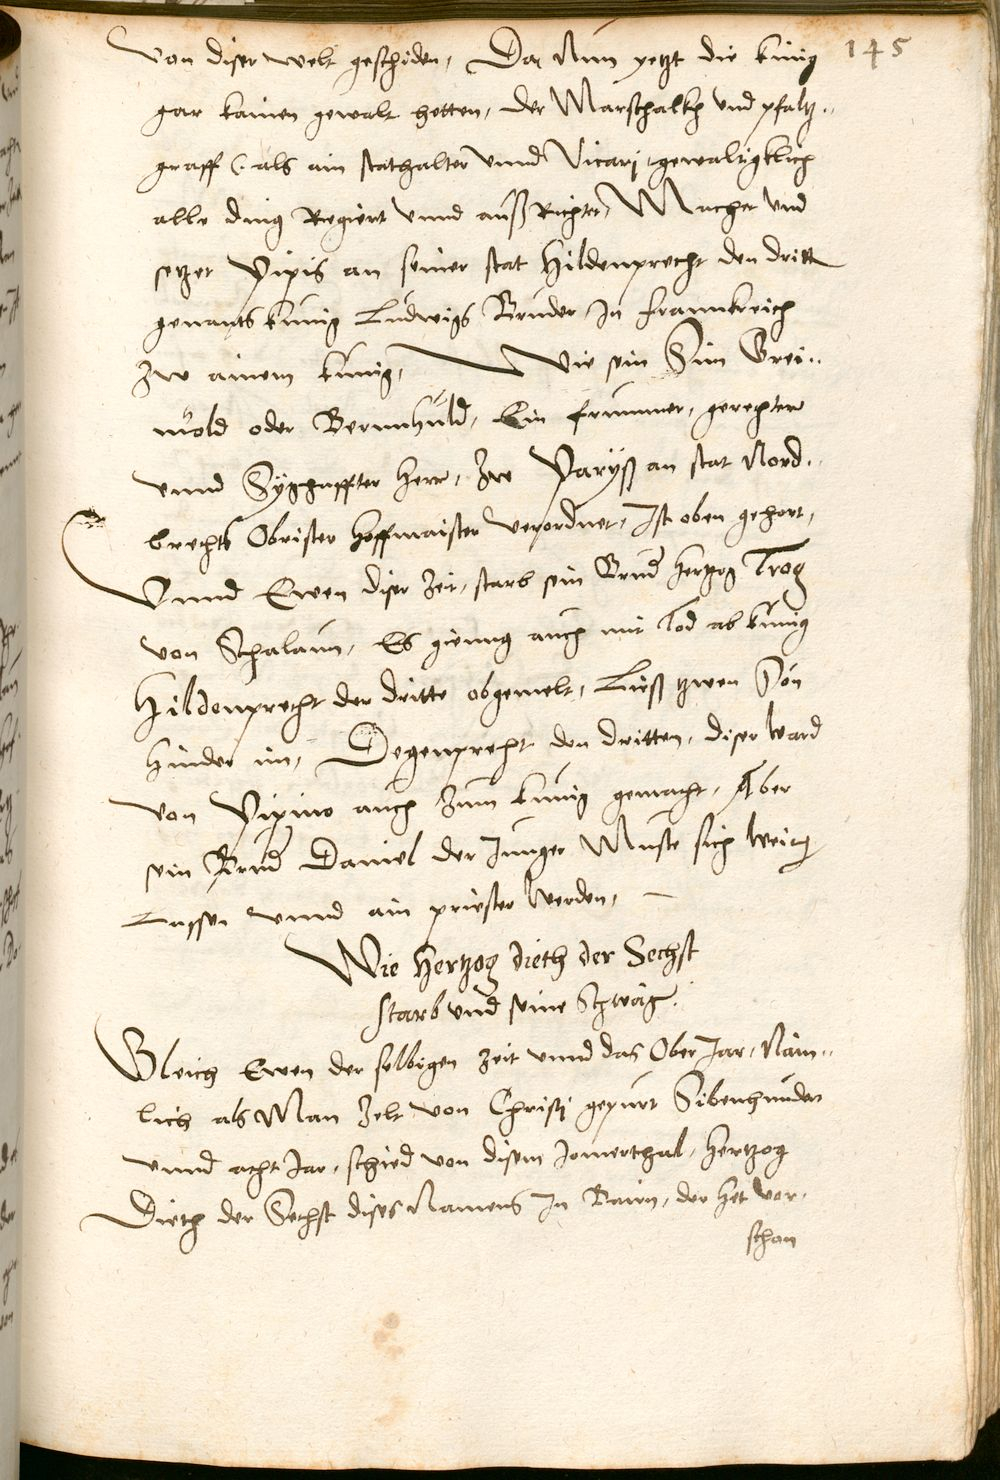 145
von diser welt geschiden, Da Nun yetzt die kunig
gar kainen gewalt hetten, der Marschalkh vnd pfaltz..
graff (. als ain stathalter vnnd Vicarj, gewaltigklich
alle ding Regiert vnnd außRichtet, Machet vnd
setzet Pipis an seiner stat Hildenprecht den dritt
genants kunig Ludwigs Bruder, In Frannkreich
zw ainem kunig, Wie sein Sun Grei..
mold oder Bermhuld, Ein frummer, gerechter
vnnd Syghaffter Herr, Zw Paryß an stat Nord..
brechts Obrister Hoffmaister verordnet, Ist oben gehort,
Vnnd Ewen diser Zeit, starb sein Brud Hertzog Trog
von Schalaun, Es gienng auch mit Tod ab kunig
Hildenprecht der dritte obgemelt, Ließ tzwen Sön
hinder im, Degenprecht den dritten, diser ward
von Pipino auch zum kunig gemacht, Aber
sein Brud Daniel der Junger Muste sich weich
Lassen vnnd ain priester werden,
Wie Hertzog dieth der Sechst
starb vnd seine Schwäg.
Gleich Ewen der selbigen Zeit vnnd das Ober Jar, Näm..
lich als Man Zelt von Christj gepurt Sibenhundert
vnnd acht Jar, schied von disem Jomerthal, Hertzog
Dieth der Sechst dises Namens In Bairn, der het vor.
schon